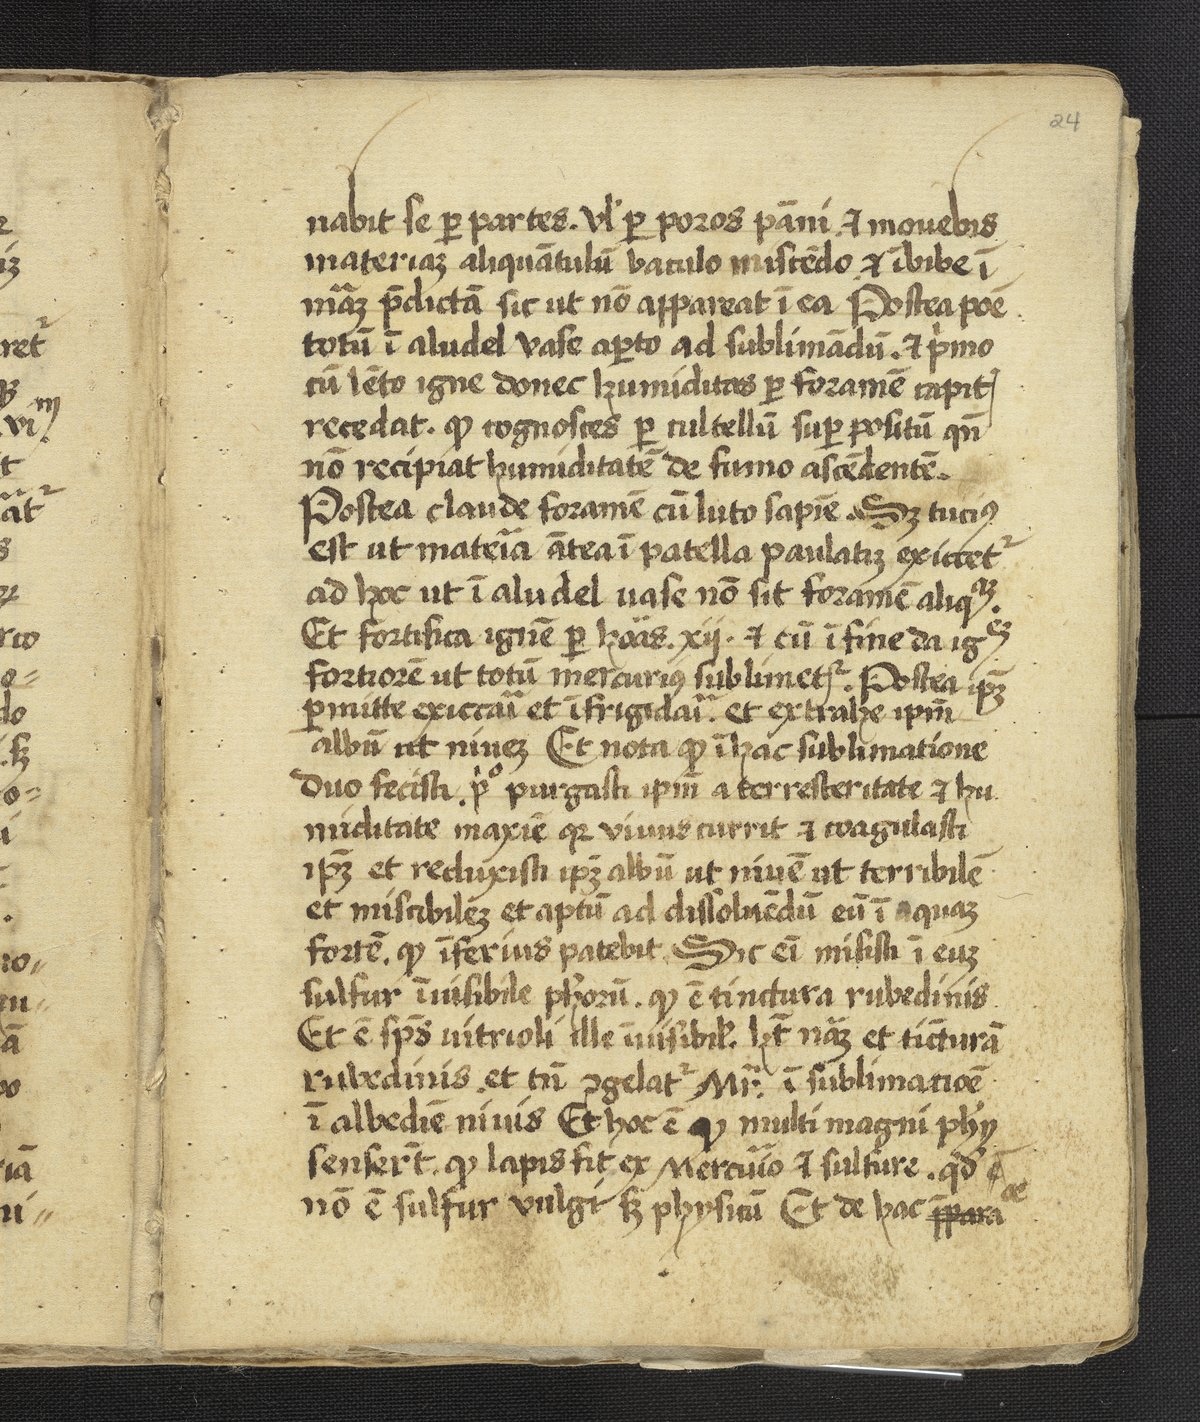 24
nabit se ꝑ partes. Vl' ꝑ poros pāni ⁊ mouebis
materiaꝫ aliquātulū baculo miscēdo ⁊ ībibe ī
māꝫ p̄dictā sic ut nō appareat ī ea Postea poē
totū ī aludel vase aꝑto ad sublimādū. ⁊ pͥmo
cū lēto igne donec humiditas ꝑ foramē capitꝭ
recedat. ꝙ cognosces ꝑ cultellū suꝑ positū qn̄
nō recipiat humiditatē de fumo ascēdentē.
Postea claude foramē cū luto sapīe. Sꝫ tuciꝰ
est ut mateīa ātea ī patella paulatiꝫ exiccet᷑
ad hoc ut ī aludel uase nō sit foramē aliqͣꝫ.
Et fortifica ignē ꝑ hoͣs. xij. ⁊ cū ī fine da igeꝫ
fortiorē ut totū mercuriꝰ sublimet᷑. Postea ipꝫ
ꝑmitte exiccaͣi et īfrigidaͣi. et extrahe ipm̄
albū ut niueꝫ Et nota ꝙ ī hac sublimatione
duo fecisti. pͥº purgasti ipm̄ a terresteritate ⁊ hu
miditate maxīe qꝛ viuus currit ⁊ coagulasti
ipꝫ et reduxisti ipꝫ albū ut niuē ut terribilē
et miscibileꝫ et aptū ad dissoluēdū eū ī aquaꝫ
fortē. ꝙ īferius patebit. Sic eī misisti ī euꝫ
sulfur īuisibile ph'orū. ꝙ ē tinctura rubedinis
Et ē sp̄s uitrioli ille īuisibil'. ht̄ nāꝫ et tīcturā
rubedinis et tn̄ ꝯgelat᷑ Mr᷑. ī sublimatioē
ī albedīe niuis Et hoc ē ꝙ multi magni ph'y
senser̄t. ꝙ lapis fit ex Mercuͥo ⁊ sulfure. qd' ē
nō ē sulfur vulgi sꝫ physicū Et de hac p̄para